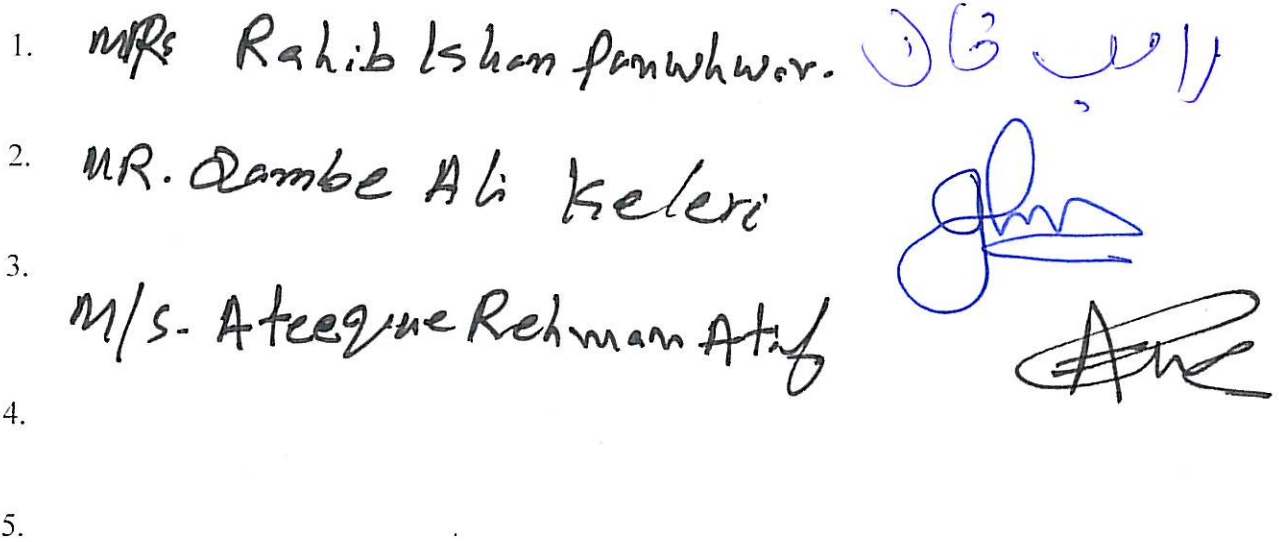 1. M/s Rahib Khan Panwhwar. راہب خان
2. MR. Qambe Ali Keleri
3.
M/s. Ateeqne Rehman Atif
4.
5.